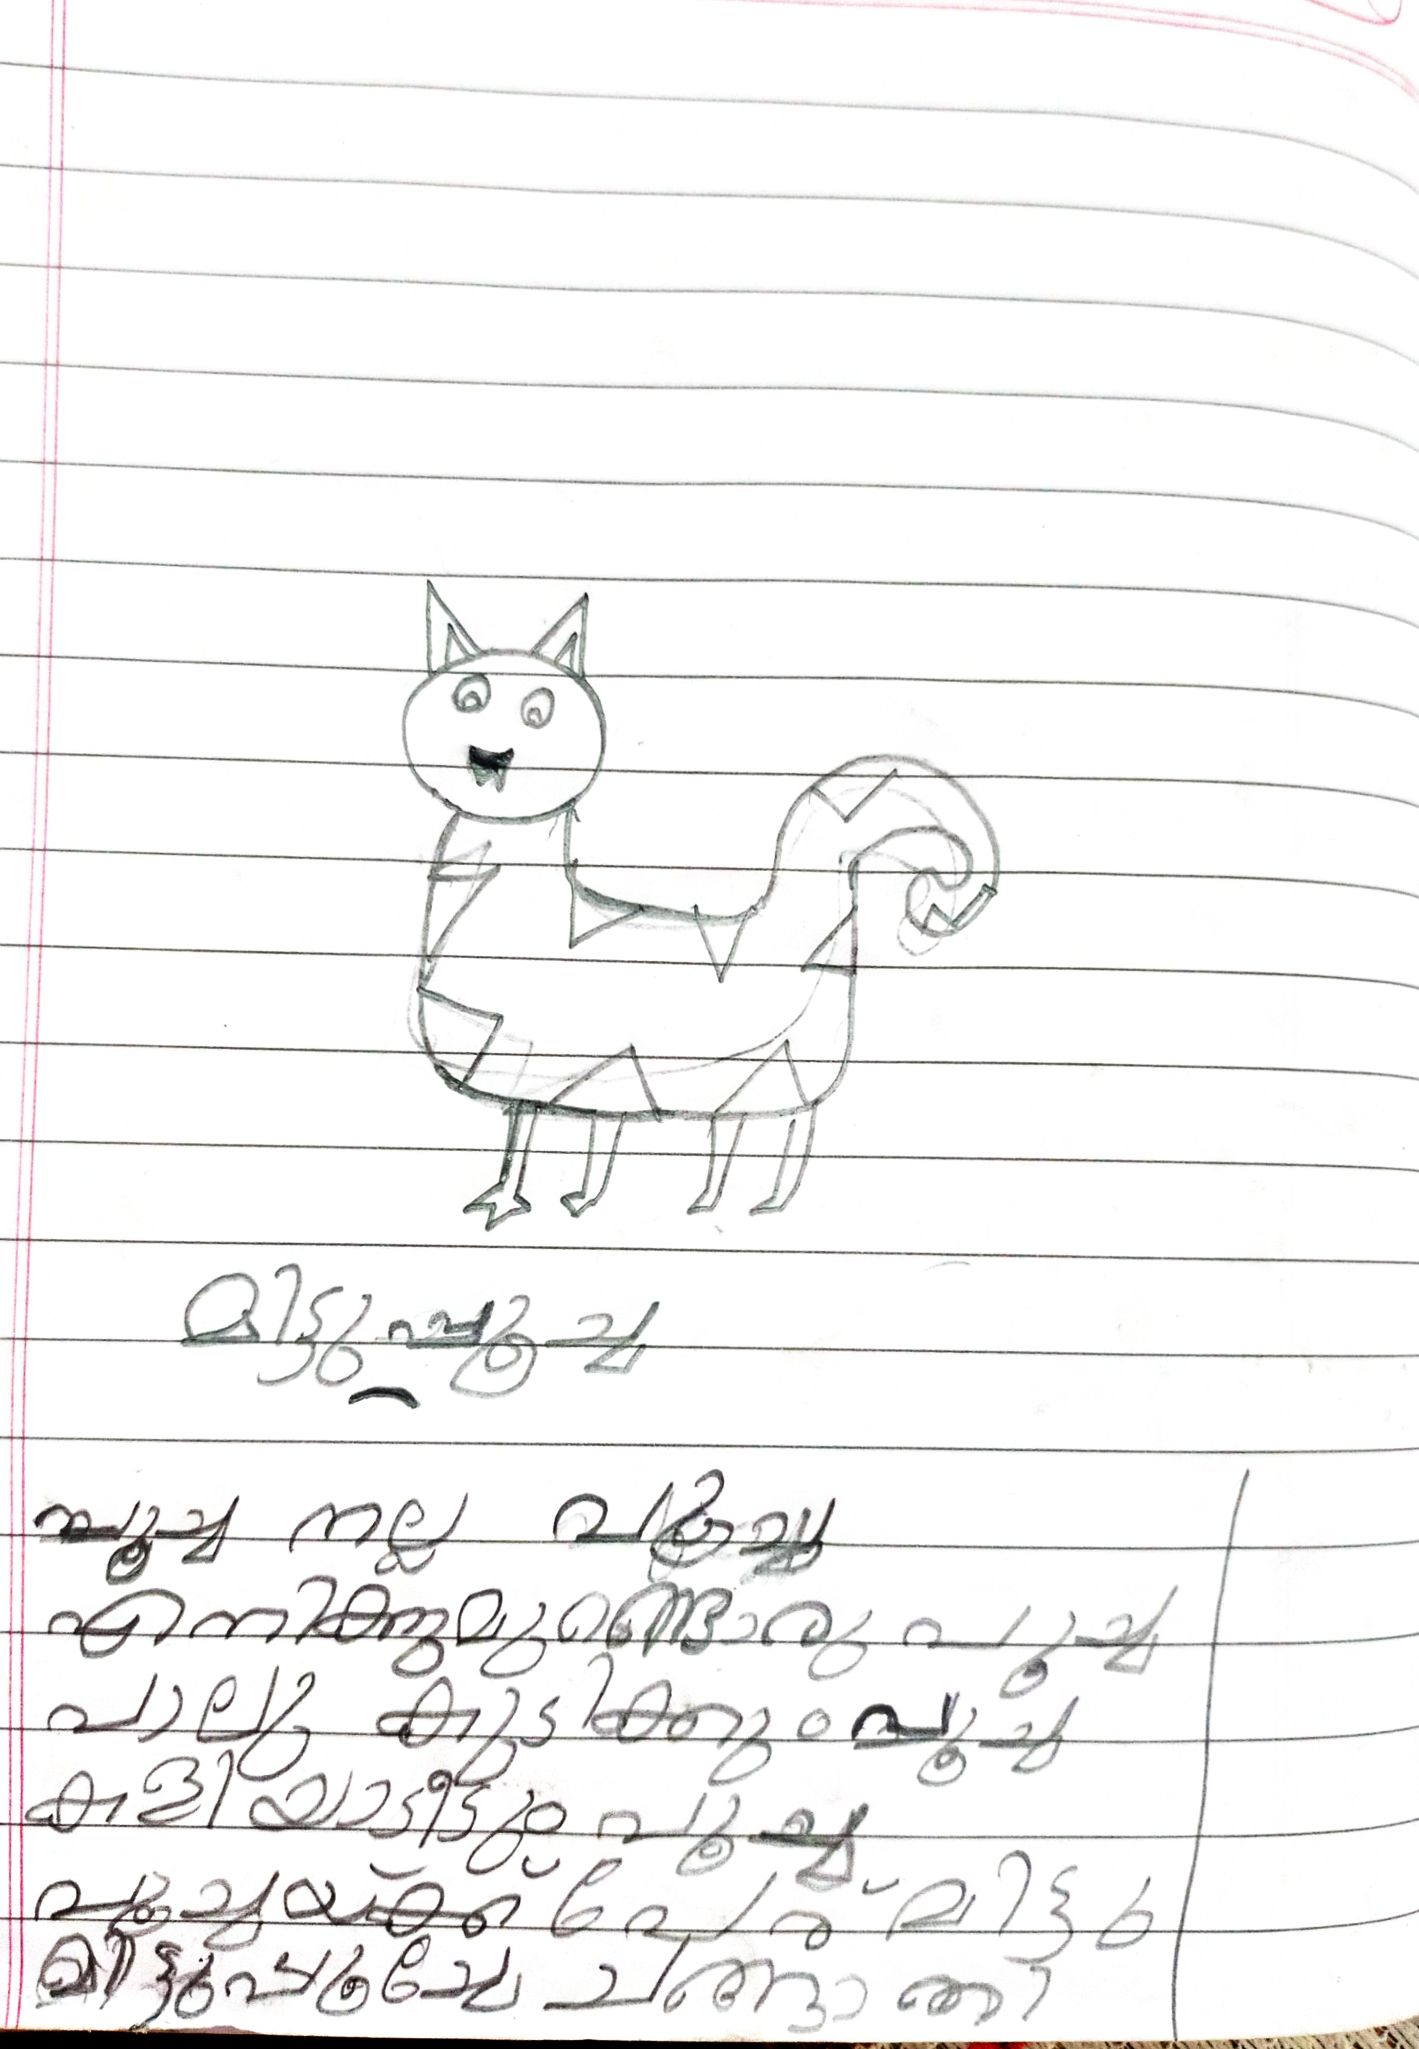 മിട്ടുപ്പൂച്ച
പൂച്ച നല്ല പൂച്ച
എനിക്കുമുണ്ടൊരു പൂച്ച
പാലു കുടിക്കും പൂച്ച
കളിയാടീടും പൂച്ച
പൂച്ചയ്ക്ക് പേര് മിട്ടു
മിട്ടുപൂച്ചേ ചങ്ങാത്തി